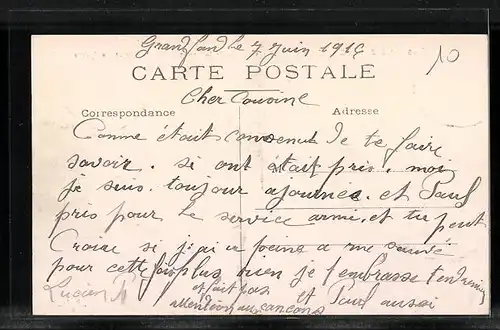 Grandfand le 7 juin 1916
10
CARTE POSTALE
Cher Cousine
Correspondance
Adresse
Comme était convenue Je te faire
savoir. si ont était pris. moi
je suis. toujour ajournee. et Paul
pris pour le service armé. et tu peut
Croire si j'ai eu peine a me sauvé
pour cette fois plus rien je t'embrasse tendrement
Lucien
et fait pas
attention au cancons
et Paul aussi